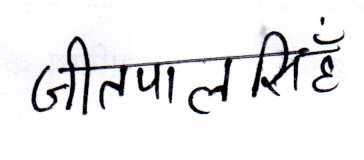 जीतपाल सिहँ